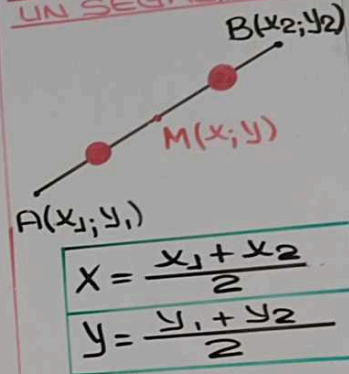 UN
B(x2;y2)
M(x;y)
A(x1;y1)
x = x1 + x2 / 2
y = y1 + y2 / 2